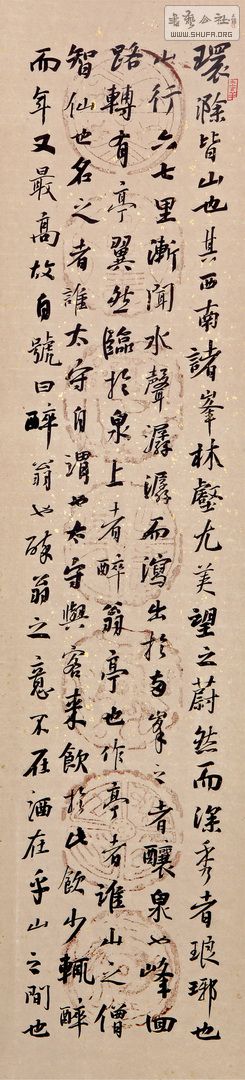 书艺公社
WWW.SHUFA.ORG
環滁皆山也其西南諸峯林壑尤美望之蔚然而深秀者琅琊也
山行六七里漸聞水聲潺潺而瀉出於两峯之者釀泉也峰回
路轉有亭翼然臨於泉上者醉翁亭也作亭者誰山之僧
智仙也名之者誰太守自謂也太守與客来飲於此飲少輒醉
而年又最高故自號曰醉翁也醉翁之意不在酒在乎山之間也